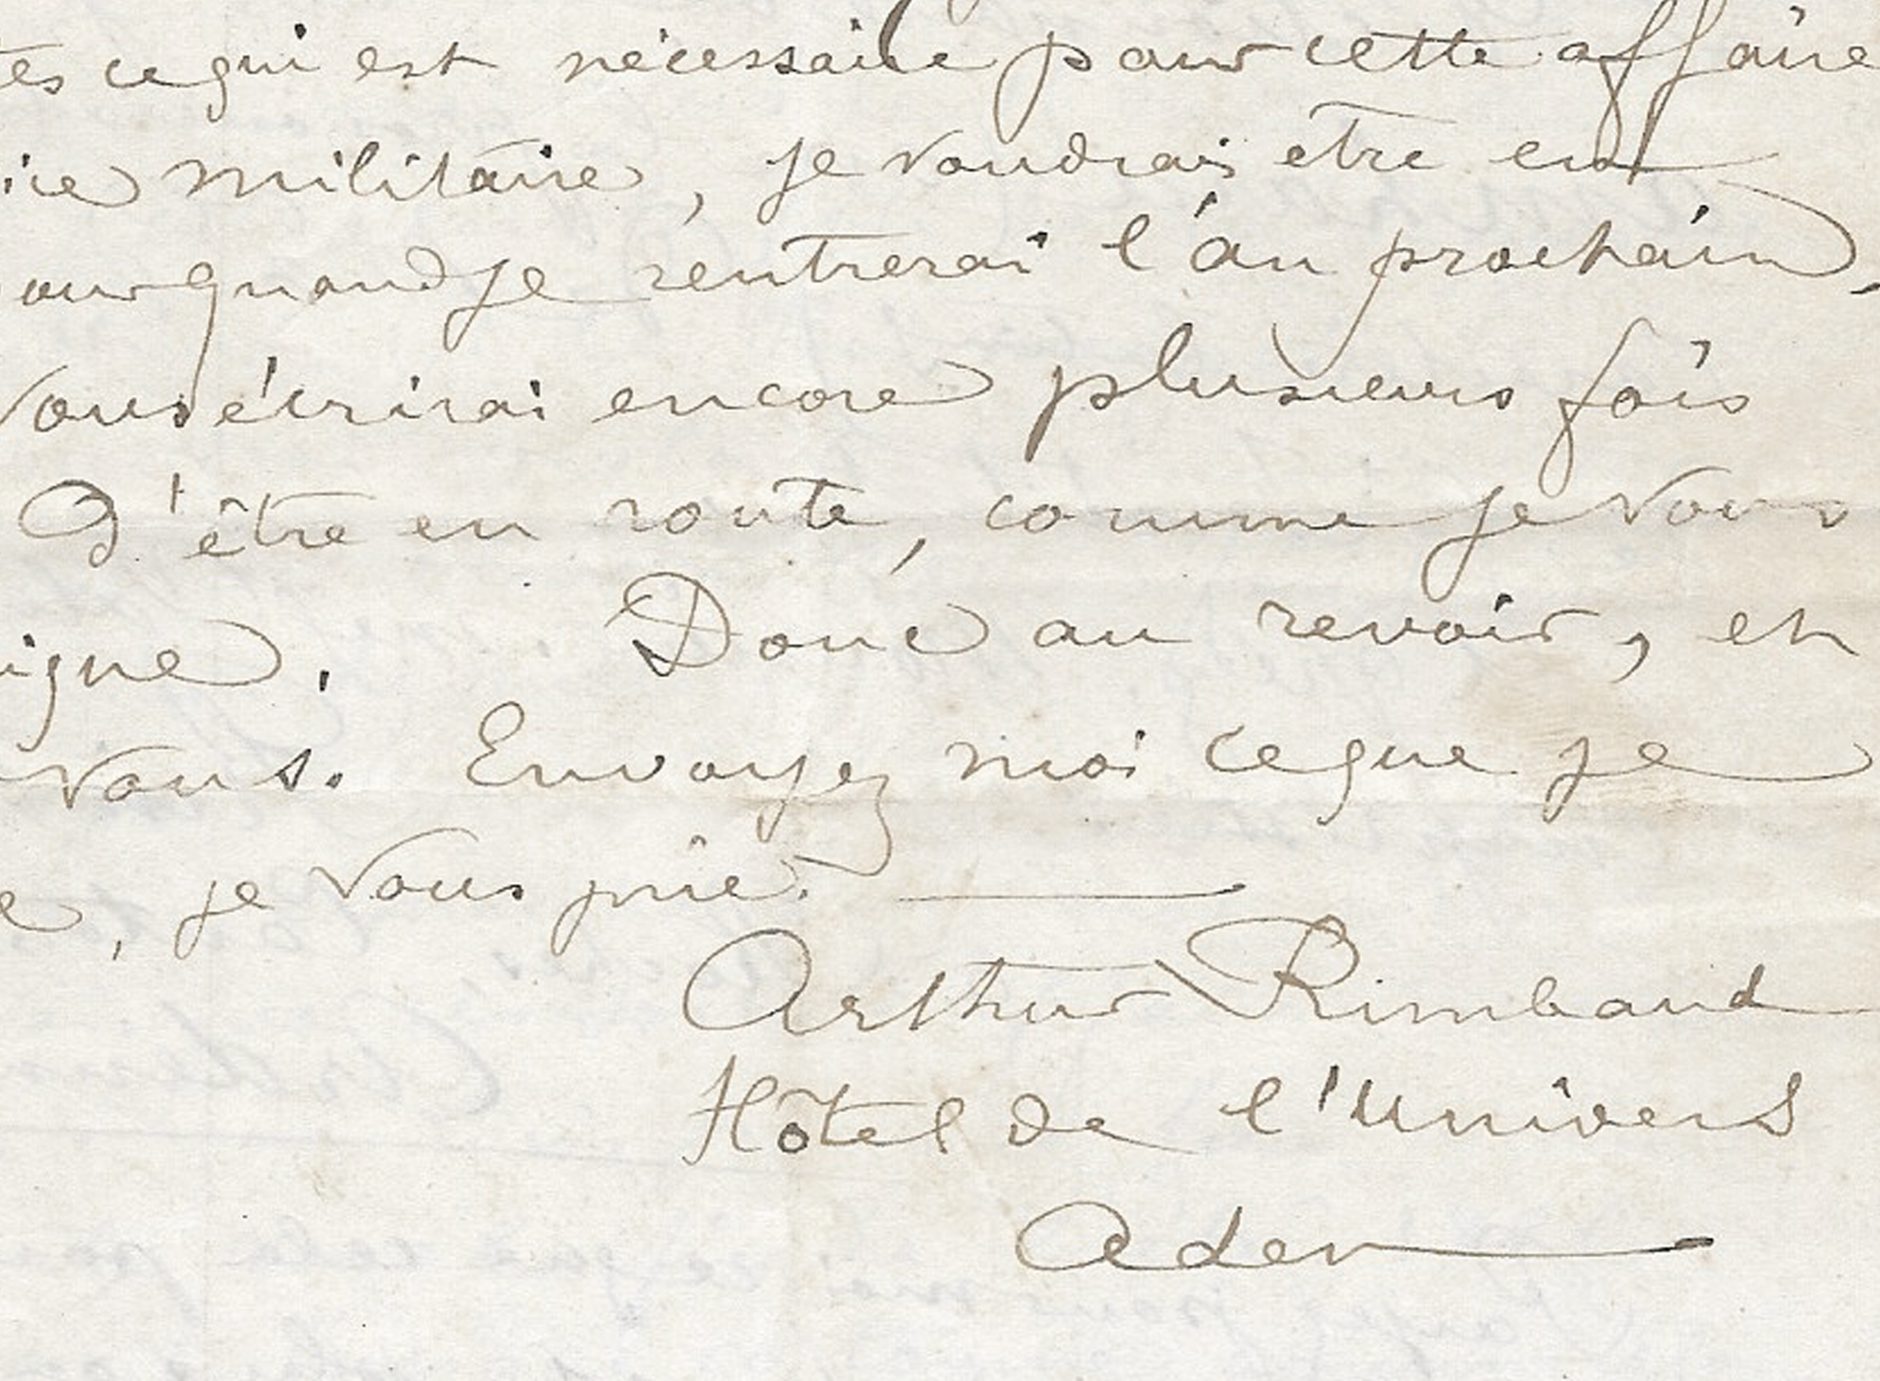 tes ce qui est nécessaire pour cette affaire
ice militaire, je voudrais etre en
our quand je rentrerai l'an prochain,
vous écrirai encore plusieurs fois
D'être en route, comme je vous
igne. Donc au revoir, et
vous. Envoyez moi ce que je
e, je vous prie.
Arthur Rimbaud
Hôtel de l'Univers
Aden